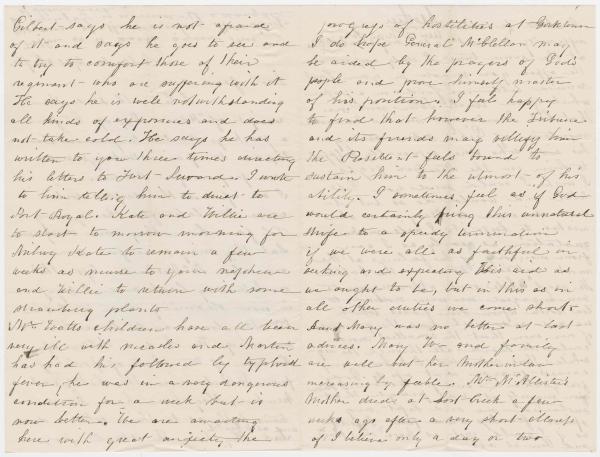 Gilbert says he is not afraid
of it and says he goes to see and
to try to comfort those of their
regiment who are suffering with it
He says he is well notwithstanding
all kinds of exposures and does
not take cold. He says he has
written to you three times directing
his letters to Fort Seward. I wrote
to him telling him to direct to
Port Royal. Kate and Willie are
to start to morrow morning for
Kate to remain a few
weeks as nurse to your nephew
and Willie to return with some
strawberry plants
Mr. Watts children have all been
very ill with measles and Martin
has had his followed by typhoid
fever, he was in a very dangerous
condition for a week but is
now better. We are awaiting
here with great anxiety the
progress of hostilities at Yorktown
I do hope General McClellan may
be aided by the prayers of God's
people and prove himself master
of his position. I feel happy
to find that however the Tribune
and its friends may villify him
the President feels bound to
sustain him to the utmost of his
ability. I sometimes feel as if God
would certainly bring this unnatural
strife to a speedy termination
if we were all as faithful in
seeking and expecting His aid as
we ought to be, but in this as in
all other duties we come short.
Aunt Mary was no better at last
advices. Mary W and family
are well but her Mother in law
increasingly feeble. Mr McAllister's
Mother died at Lost Creek a few
weeks ago after a very short illness
of I believe only a day or two